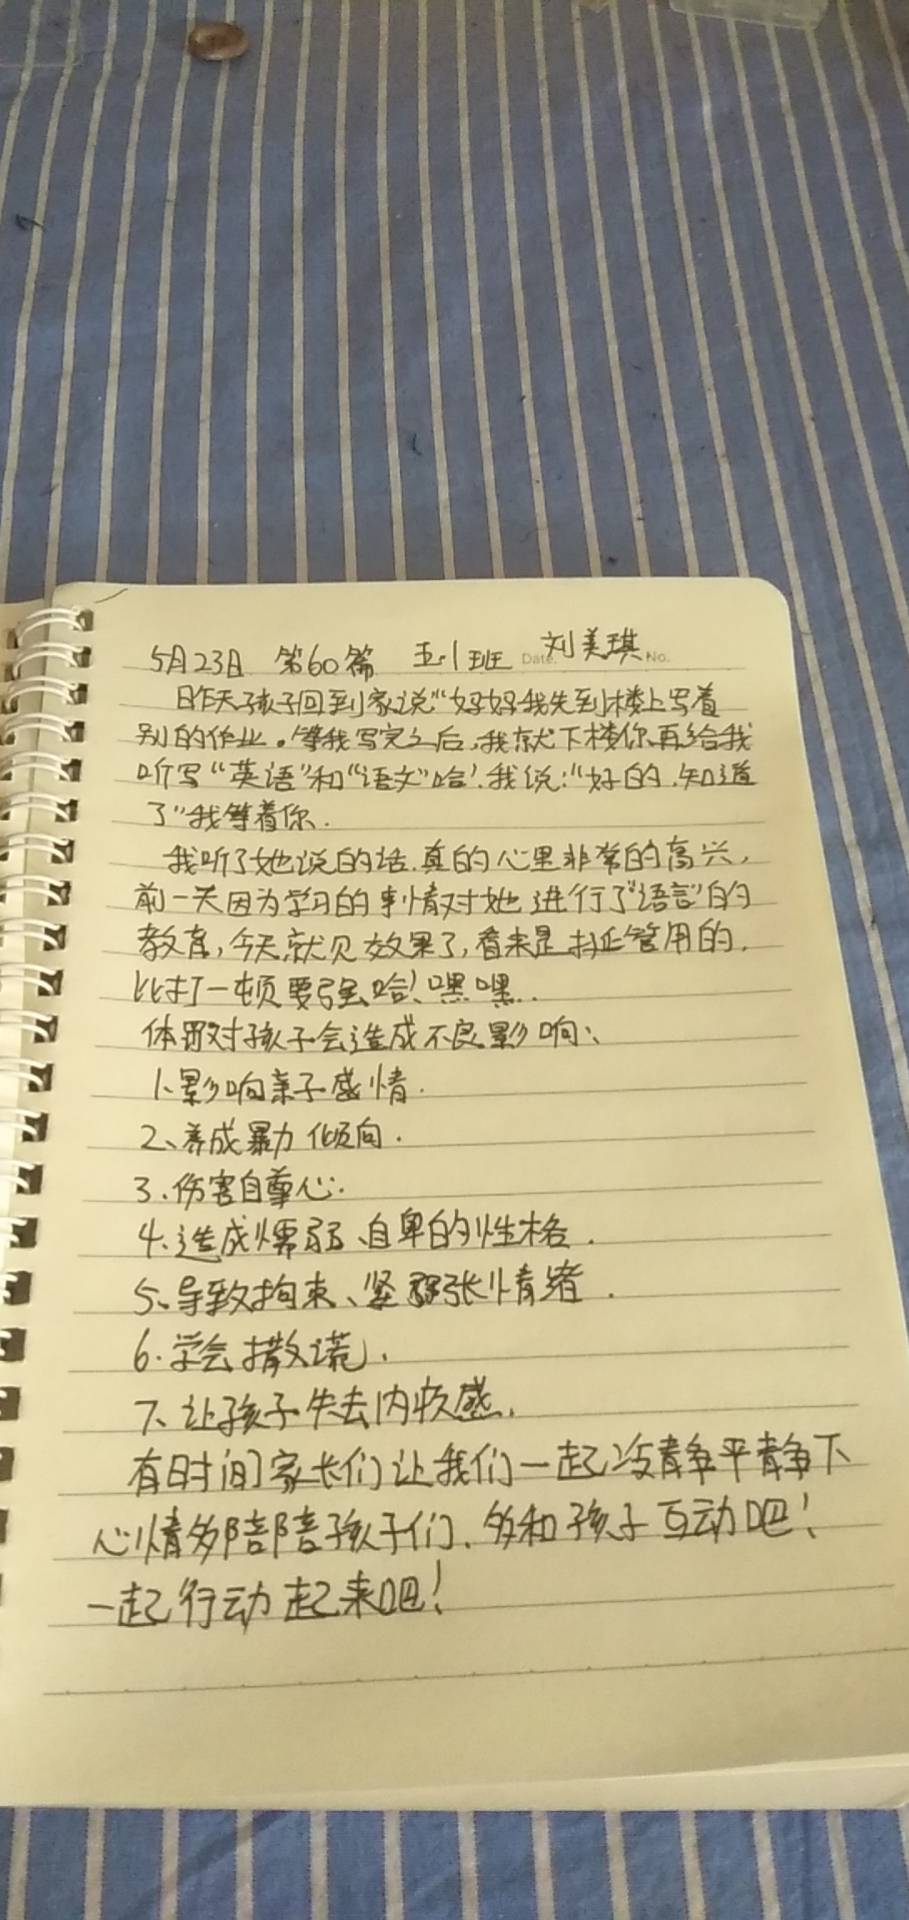 5月23日 第60篇 五.1班 Date. 刘美琪 No.
昨天孩子回到家说“妈妈我先到楼上写着
别的作业。等我写完之后,我就下楼你再给我
听写“英语”和“语文”哈!我说:“好的.知道
了”我等着你.
我听了她说的话.真的心里非常的高兴,
前一天因为学习的事情对她进行了“语言”的
教育,今天就见效果了,看来是挺管用的.
比打一顿要强哈!嘿嘿.
体罚对孩子会造成不良影响:
1、影响亲子感情.
2、养成暴力倾向.
3.伤害自尊心.
4、造成懦弱、自卑的性格.
5、导致拘束、紧张情绪.
6.学会撒谎.
7、让孩子失去内疚感.
有时间家长们让我们一起 静平静下
心情多陪陪孩子们.多和孩子互动吧!
一起行动起来吧!